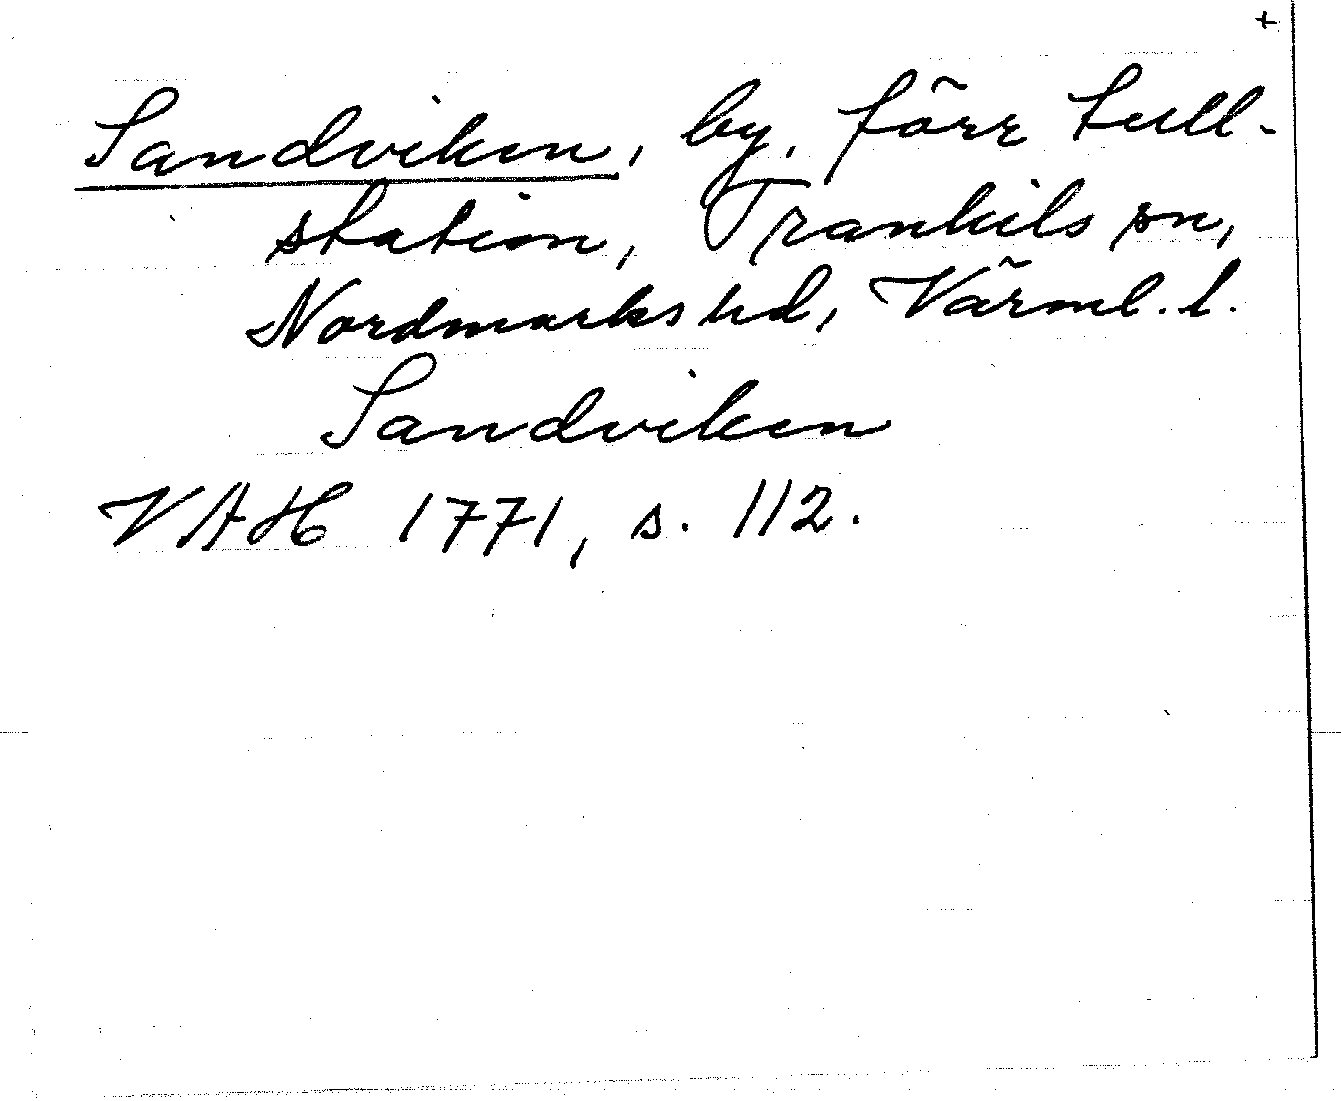 +
Sandviken, by, förr tull-
station, Trankils sn,
Nordmarks hd, Värml. l.
Sandviken
VAH 1771, s. 112.